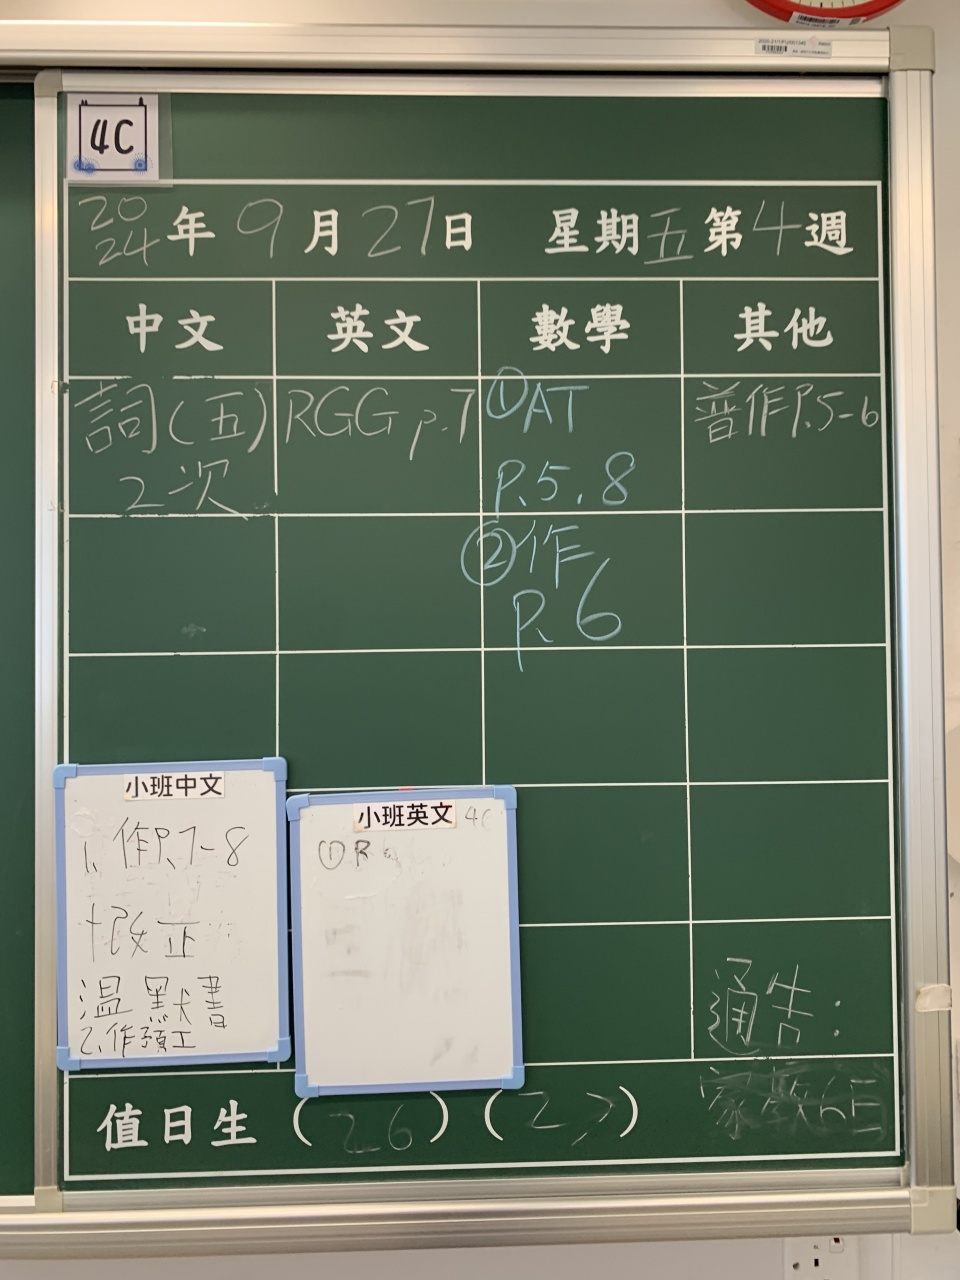 4C
2024年9月27日 星期五第4週
中文 英文 數學 其他
詞(五)
2次
RGG p.7
①AT
P.5、8
②作
P.6
普作P.5-6
小班中文
1、作P.7-8
改正
溫默書
2.作預工
小班英文 4C
①R
通告:
值日生(26)(27)